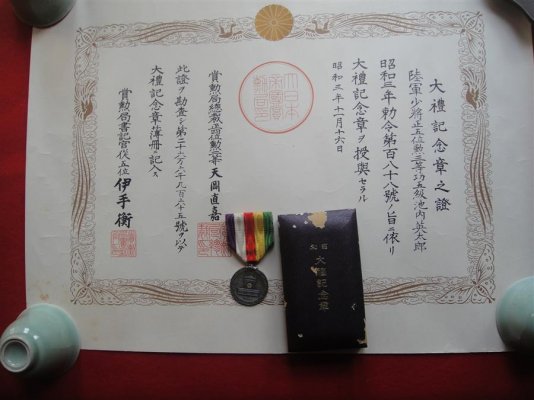 大禮記念章之證
陸軍少將正五位勲三等功五級池内英太郎
昭和三年勅令第百八十八號ノ旨ニ依リ
大禮記念章ヲ授與セラル
昭和三年十一月十六日
賞勲局總裁正四位勲二等天岡直嘉
此證ヲ勘査シ第二十六万八千九百三十五號ヲ以テ
大禮記念章簿冊ニ記入ス
賞勲局書記官從五位 伊手衡
大禮記念章